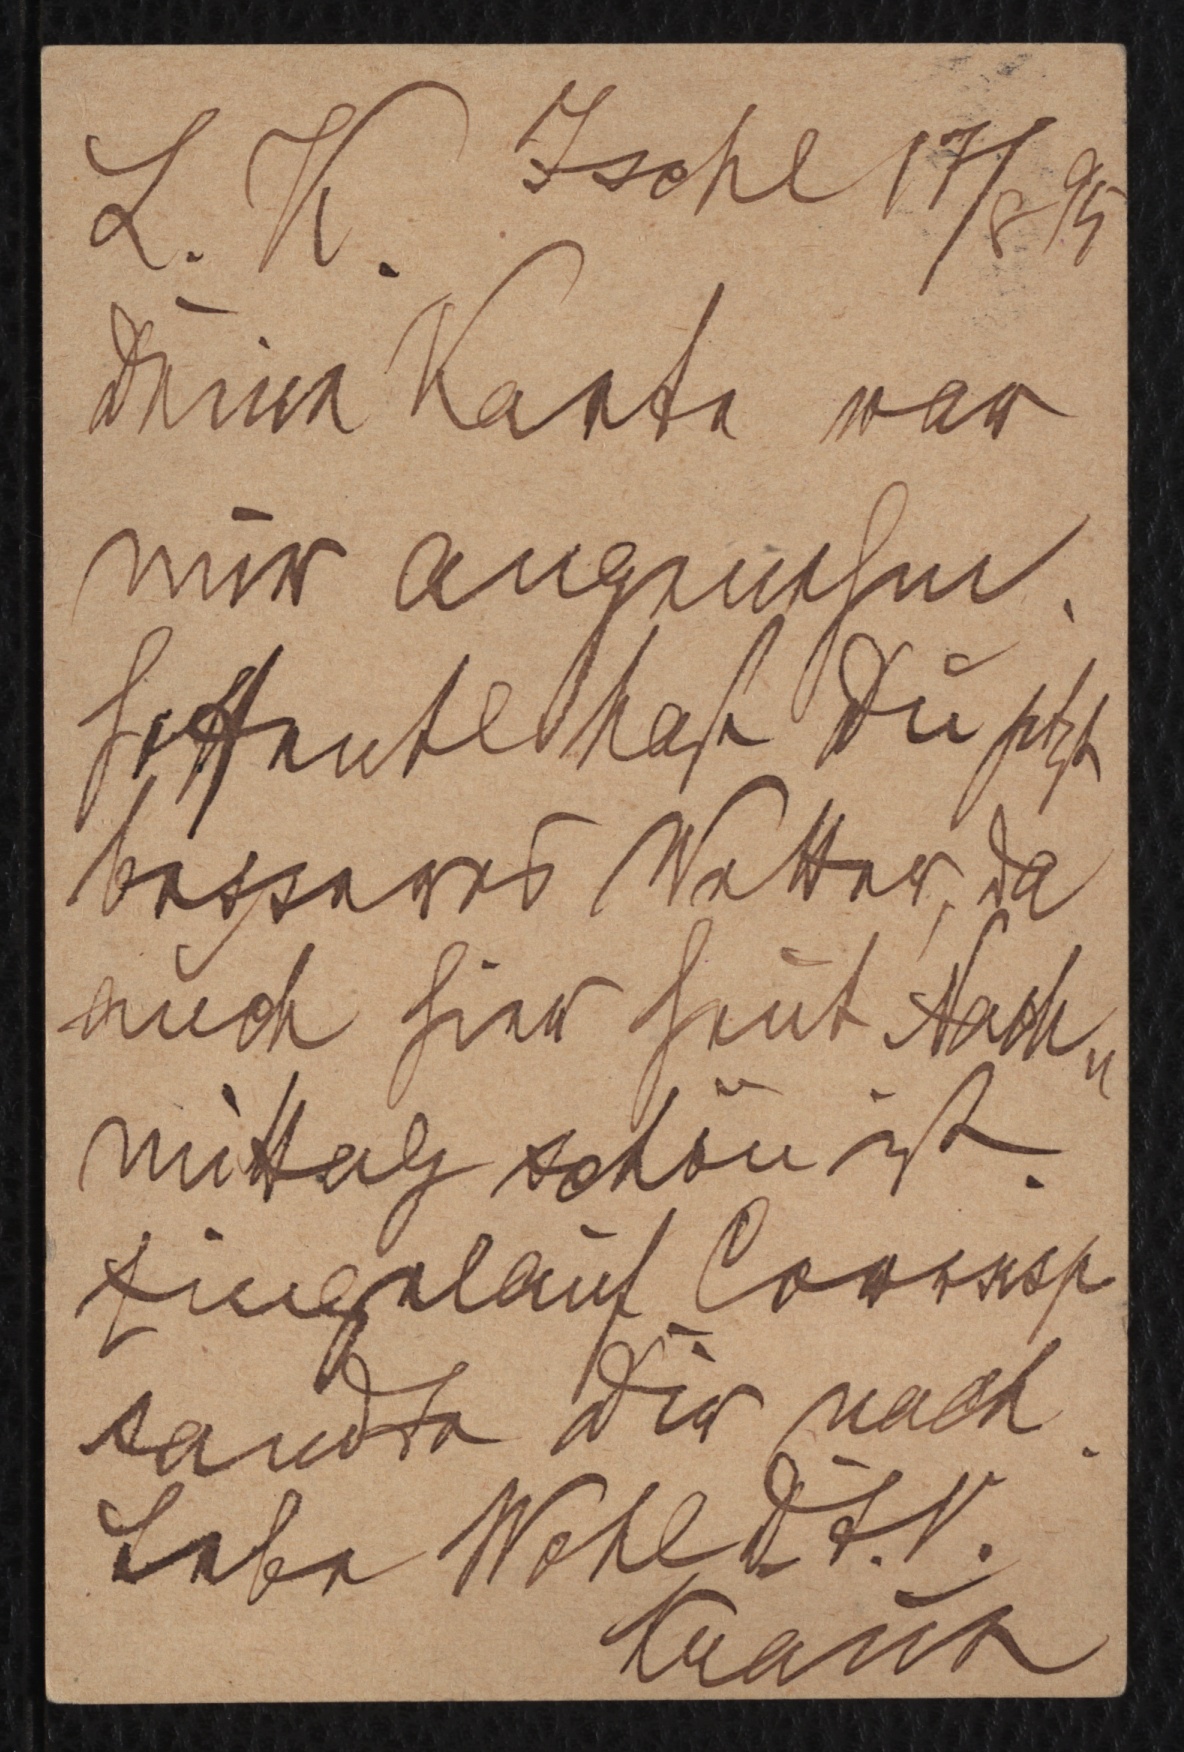 L. K. Ischl 17/8 95
Deine Karte war
mir angenehm.
hoffentl hast Du jetzt
besseres Wetter, da
auch hier heut Nach„
mittag schön ist.
Eingelauf Corresp
sandte Dir nach.
Lebe Wohl D. tr. V.